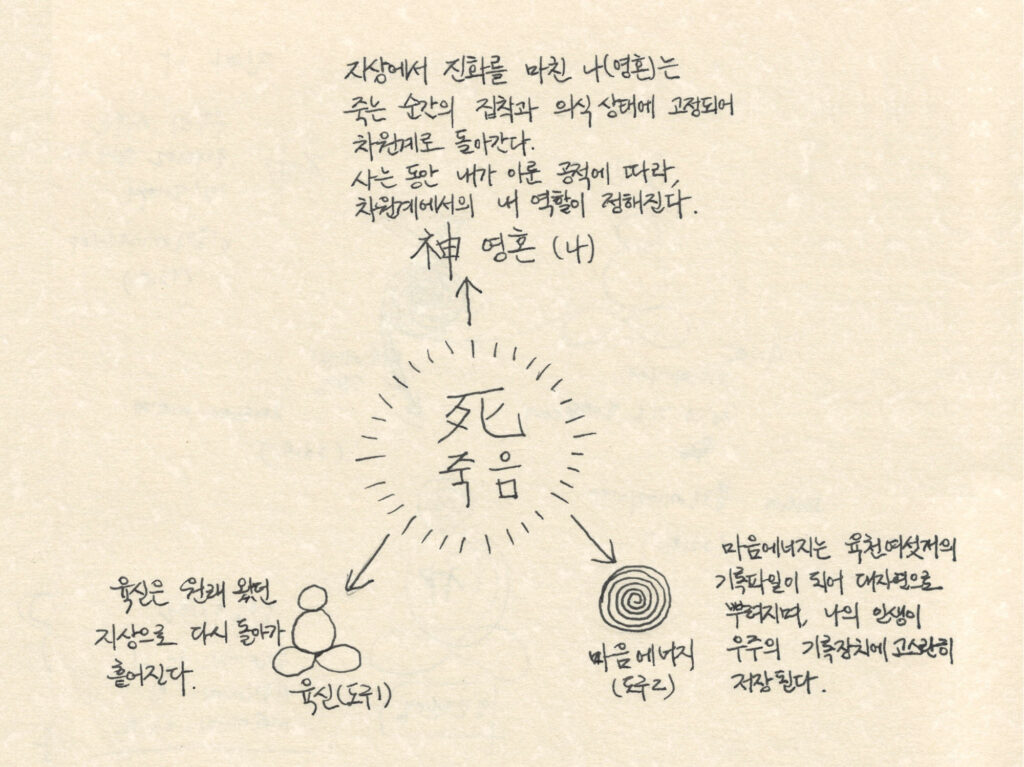 지상에서 진화를 마친 나(영혼)는
죽는 순간의 집착과 의식 상태에 고정되어
차원계로 돌아간다.
사는 동안 내가 이룬 공적에 따라,
차원계에서의 내 역할이 정해진다.
神 영혼 (나)
死
죽음
육신은 원래 왔던
지상으로 다시 돌아가
흩어진다.
육신(도구1)
마음에너지
(도구2)
마음에너지는 육천여섯개의
기록파일이 되어 대자연으로
뿌려지며, 나의 인생이
우주의 기록장치에 고스란히
저장된다.